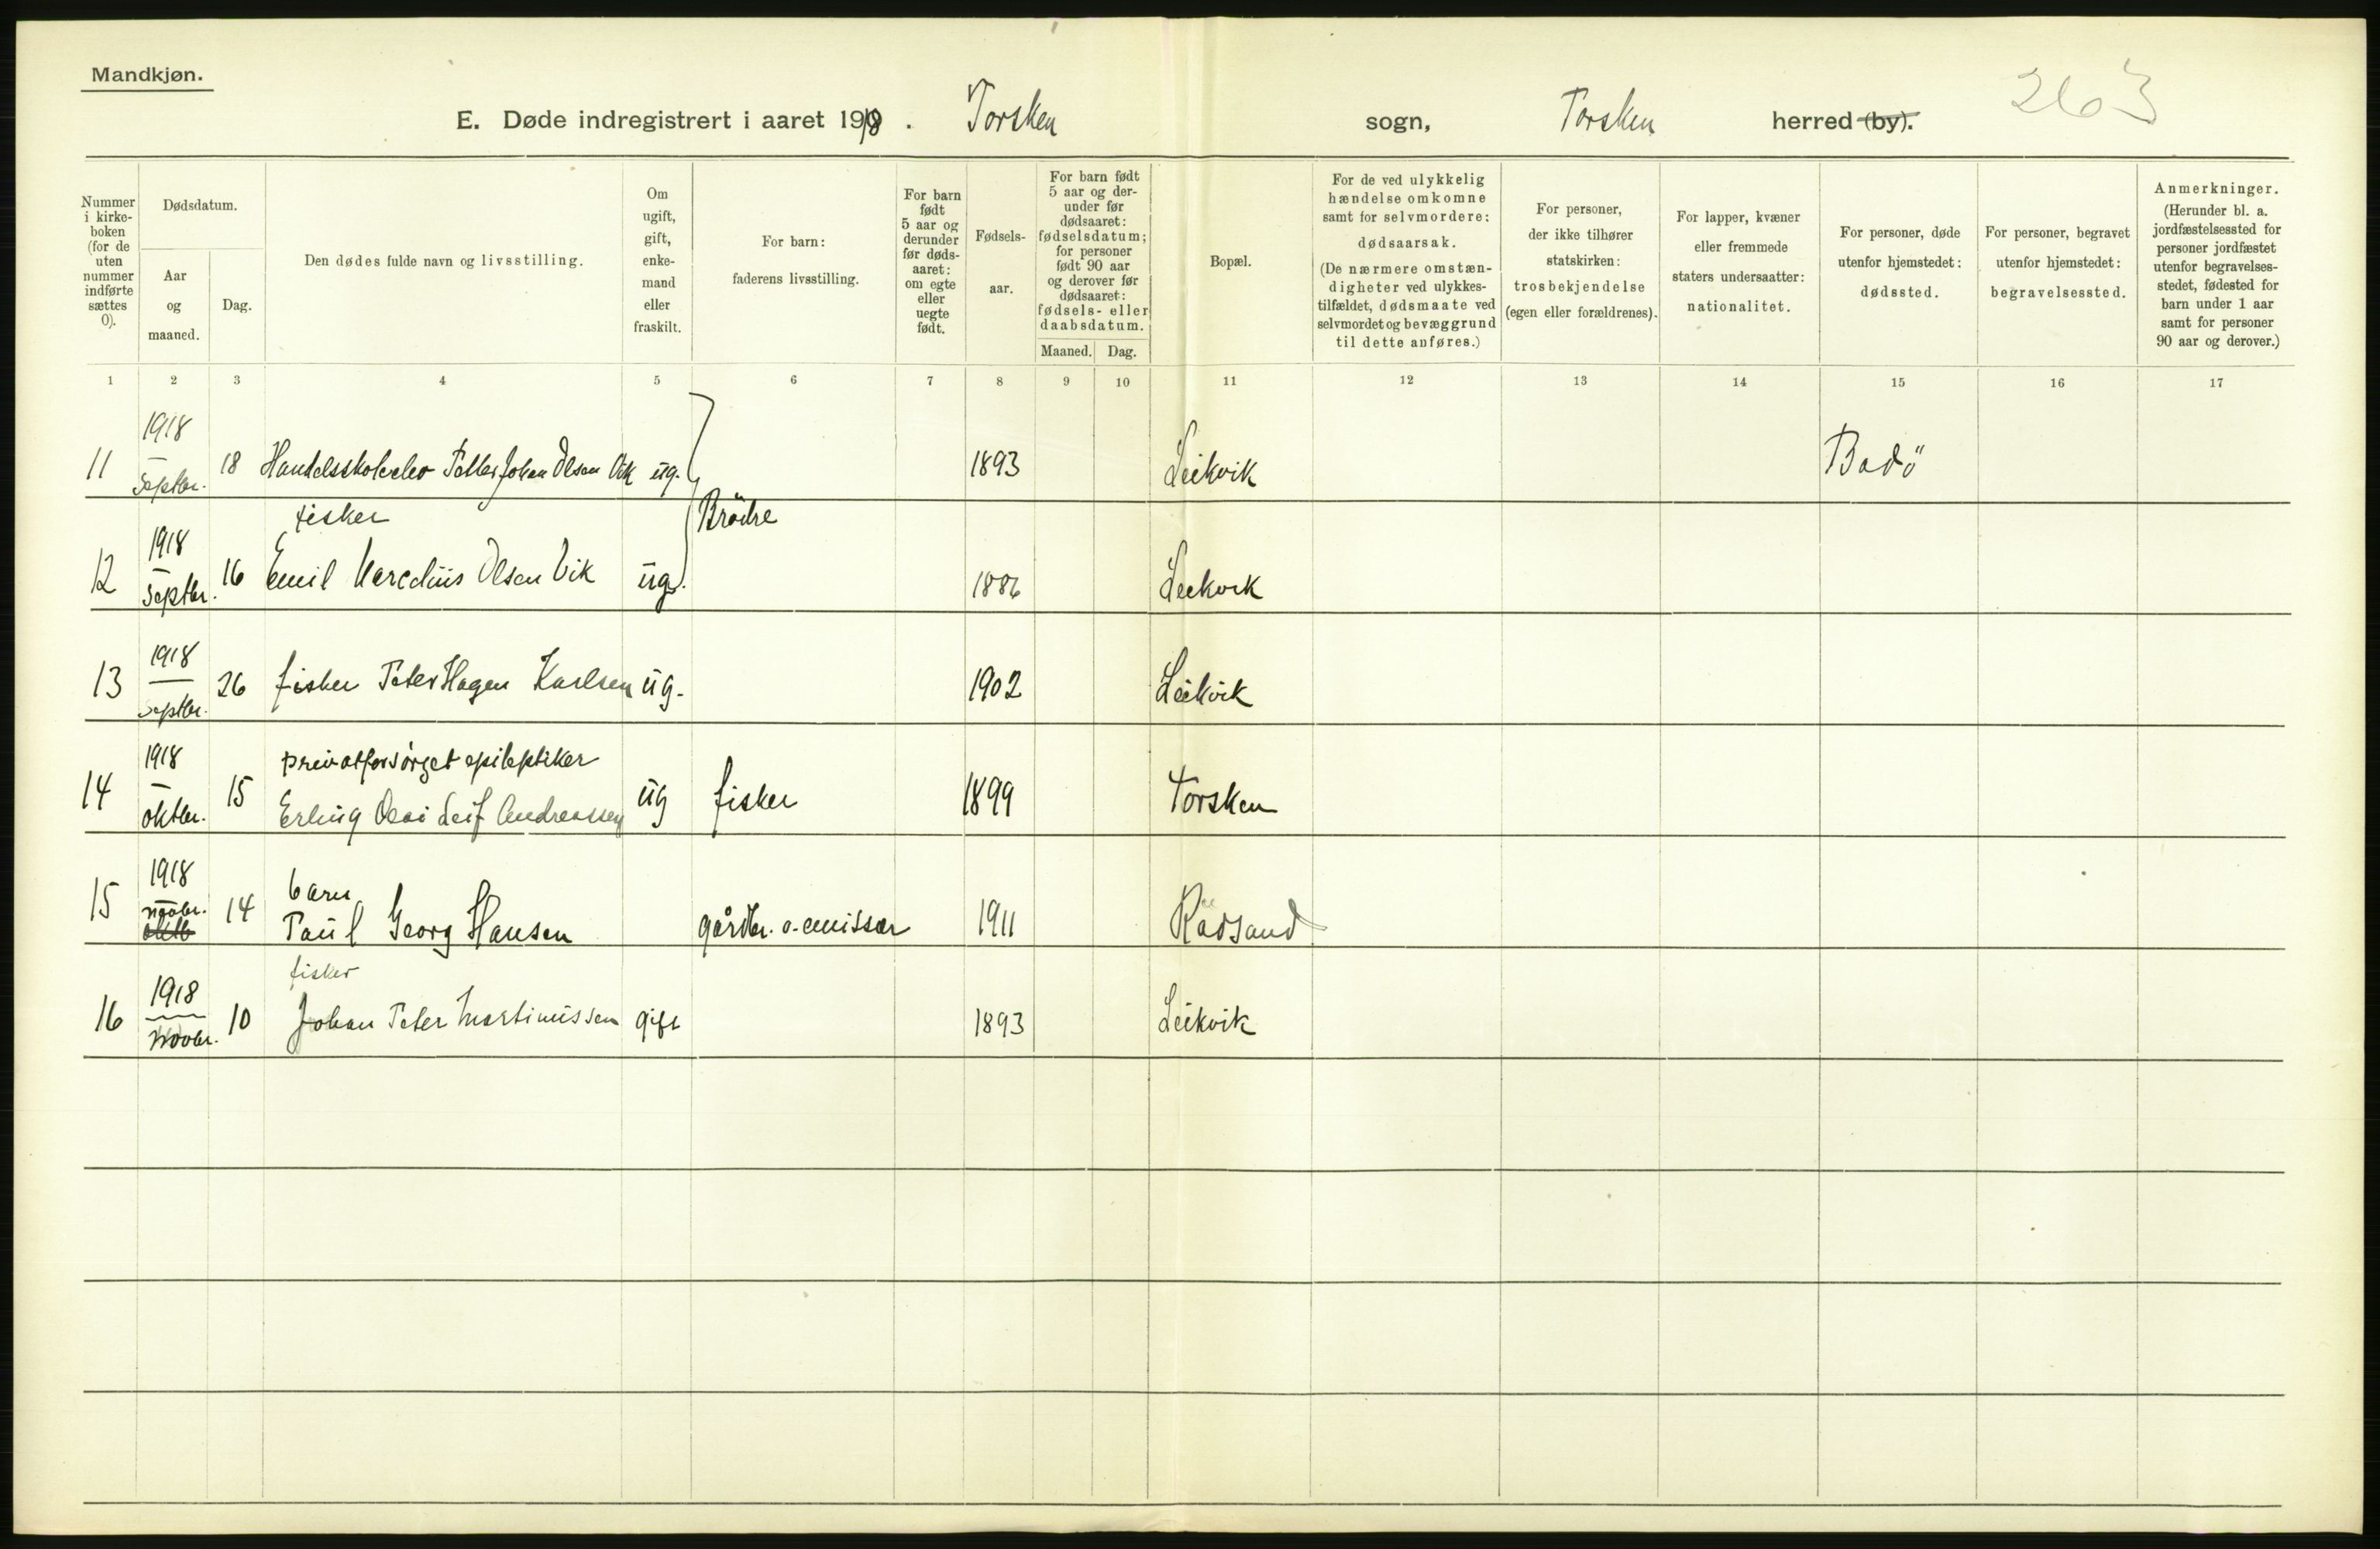 Mandkjøn.
263
E. Døde indregistrert i aaret 1918. Torsken sogn, Torsken herred (by).
Nummer i kirke-boken (for de uten nummer indførte sættes 0).
Dødsdatum.
Aar og maaned.
Dag.
Den dødes fulde navn og livsstilling.
Om ugift, gift, enke-mand eller fraskilt.
For barn: faderens livsstilling.
For barn født 5 aar og derunder før døds-aaret: om egte eller uegte født.
Fødsels-aar.
For barn født 5 aar og der-under før dødsaaret: fødselsdatum; for personer født 90 aar og derover før dødsaaret: fødsels- eller daabsdatum.
Maaned. Dag.
Bopæl.
For de ved ulykkelig hændelse omkomne samt for selvmordere: dødsaarsak. (De nærmere omstæn-digheter ved ulykkes-tilfældet, dødsmaate ved selvmordet og bevæggrund til dette anføres.)
For personer, der ikke tilhører statskirken: trosbekjendelse (egen eller forældrenes).
For lapper, kvæner eller fremmede staters undersaatter: nationalitet.
For personer, døde utenfor hjemstedet: dødssted.
For personer, begravet utenfor hjemstedet: begravelsessted.
Anmerkninger. (Herunder bl. a. jordfæstelsessted for personer jordfæstet utenfor begravelses-stedet, fødested for barn under 1 aar samt for personer 90 aar og derover.)
1 2 3 4 5 6 7 8 9 10 11 12 13 14 15 16 17
1918
11 Septbr. 18 Handelsskoleelev Peter Johan Olsen Vik ug. 1893 Leikvik Bodö
fisker Brödre
1918
12 Septbr. 16 Emil Marelius Olsen Vik ug. 1886 Leikvik
1918
13 Septbr. 26 fisker Peter Hagen Karlsen ug. 1902 Leikvik
1918 privatforsörget epileptiker
14 oktbr. 15 Erling Leif Andreassen ug fisker 1899 Torsken
1918 barn
15 novbr. 14 Paul Georg Hansen gårdbr. o. emissær 1911 Rödsand
oktb
fisker
1918
16 Novbr. 10 Johan Peter Martinussen gift 1893 Leikvik